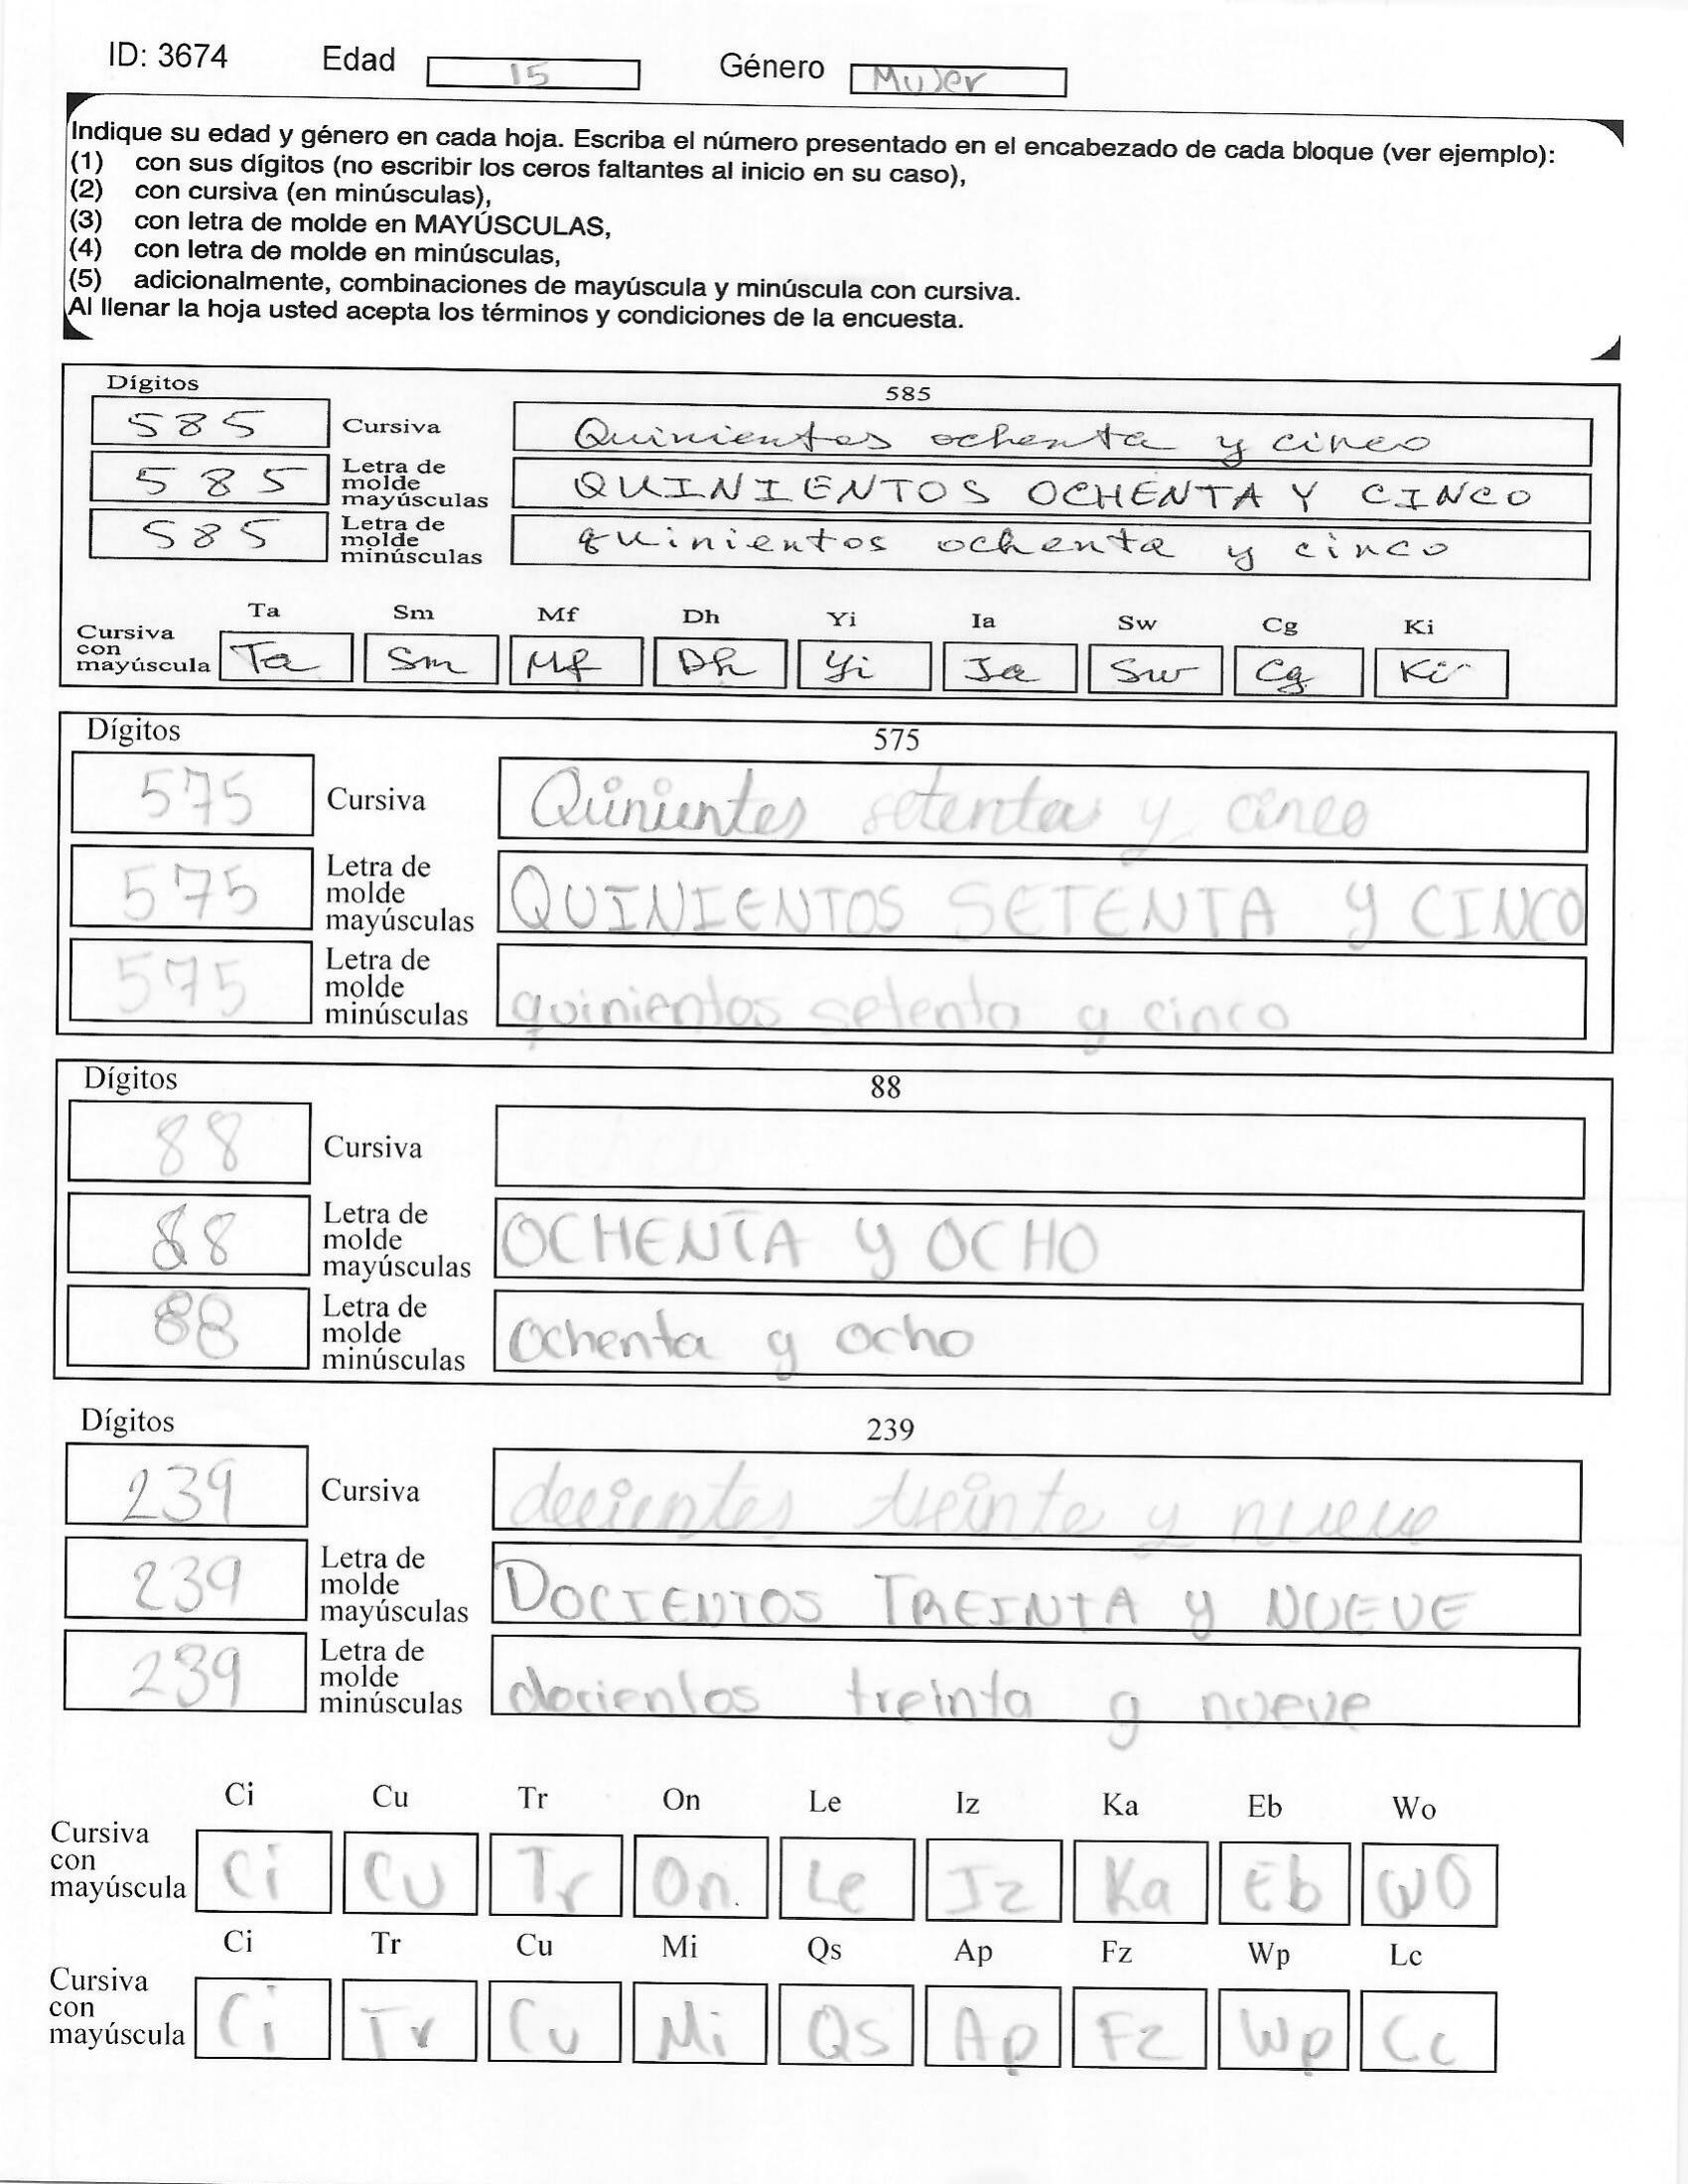 ID: 3674 Edad 15 Género Mujer
Indique su edad y género en cada hoja. Escriba el número presentado en el encabezado de cada bloque (ver ejemplo):
(1) con sus dígitos (no escribir los ceros faltantes al inicio en su caso),
(2) con cursiva (en minúsculas),
(3) con letra de molde en MAYÚSCULAS,
(4) con letra de molde en minúsculas,
(5) adicionalmente, combinaciones de mayúscula y minúscula con cursiva.
Al llenar la hoja usted acepta los términos y condiciones de la encuesta.
Dígitos 585
585 Cursiva Quinientos ochenta y cinco
585 Letra de molde mayúsculas QUINIENTOS OCHENTA Y CINCO
585 Letra de molde minúsculas quinientos ochenta y cinco
Ta Sm Mf Dh Yi Ia Sw Cg Ki
Cursiva con mayúscula Ta Sm Mf Dh Yi Ia Sw Cg Ki
Dígitos 575
575 Cursiva Quinientos setenta y cinco
575 Letra de molde mayúsculas QUINIENTOS SETENTA Y CINCO
575 Letra de molde minúsculas quinientos setenta y cinco
Dígitos 88
88 Cursiva
88 Letra de molde mayúsculas OCHENTA y OCHO
88 Letra de molde minúsculas ochenta y ocho
Dígitos 239
239 Cursiva docientos treinta y nueve
239 Letra de molde mayúsculas DOCIENTOS TREINTA y NUEVE
239 Letra de molde minúsculas docientos treinta y nueve
Ci Cu Tr On Le Iz Ka Eb Wo
Cursiva con mayúscula Ci Cu Tr On Le Iz Ka Eb WO
Ci Tr Cu Mi Qs Ap Fz Wp Lc
Cursiva con mayúscula Ci Tr Cu Mi Qs Ap Fz Wp Cc